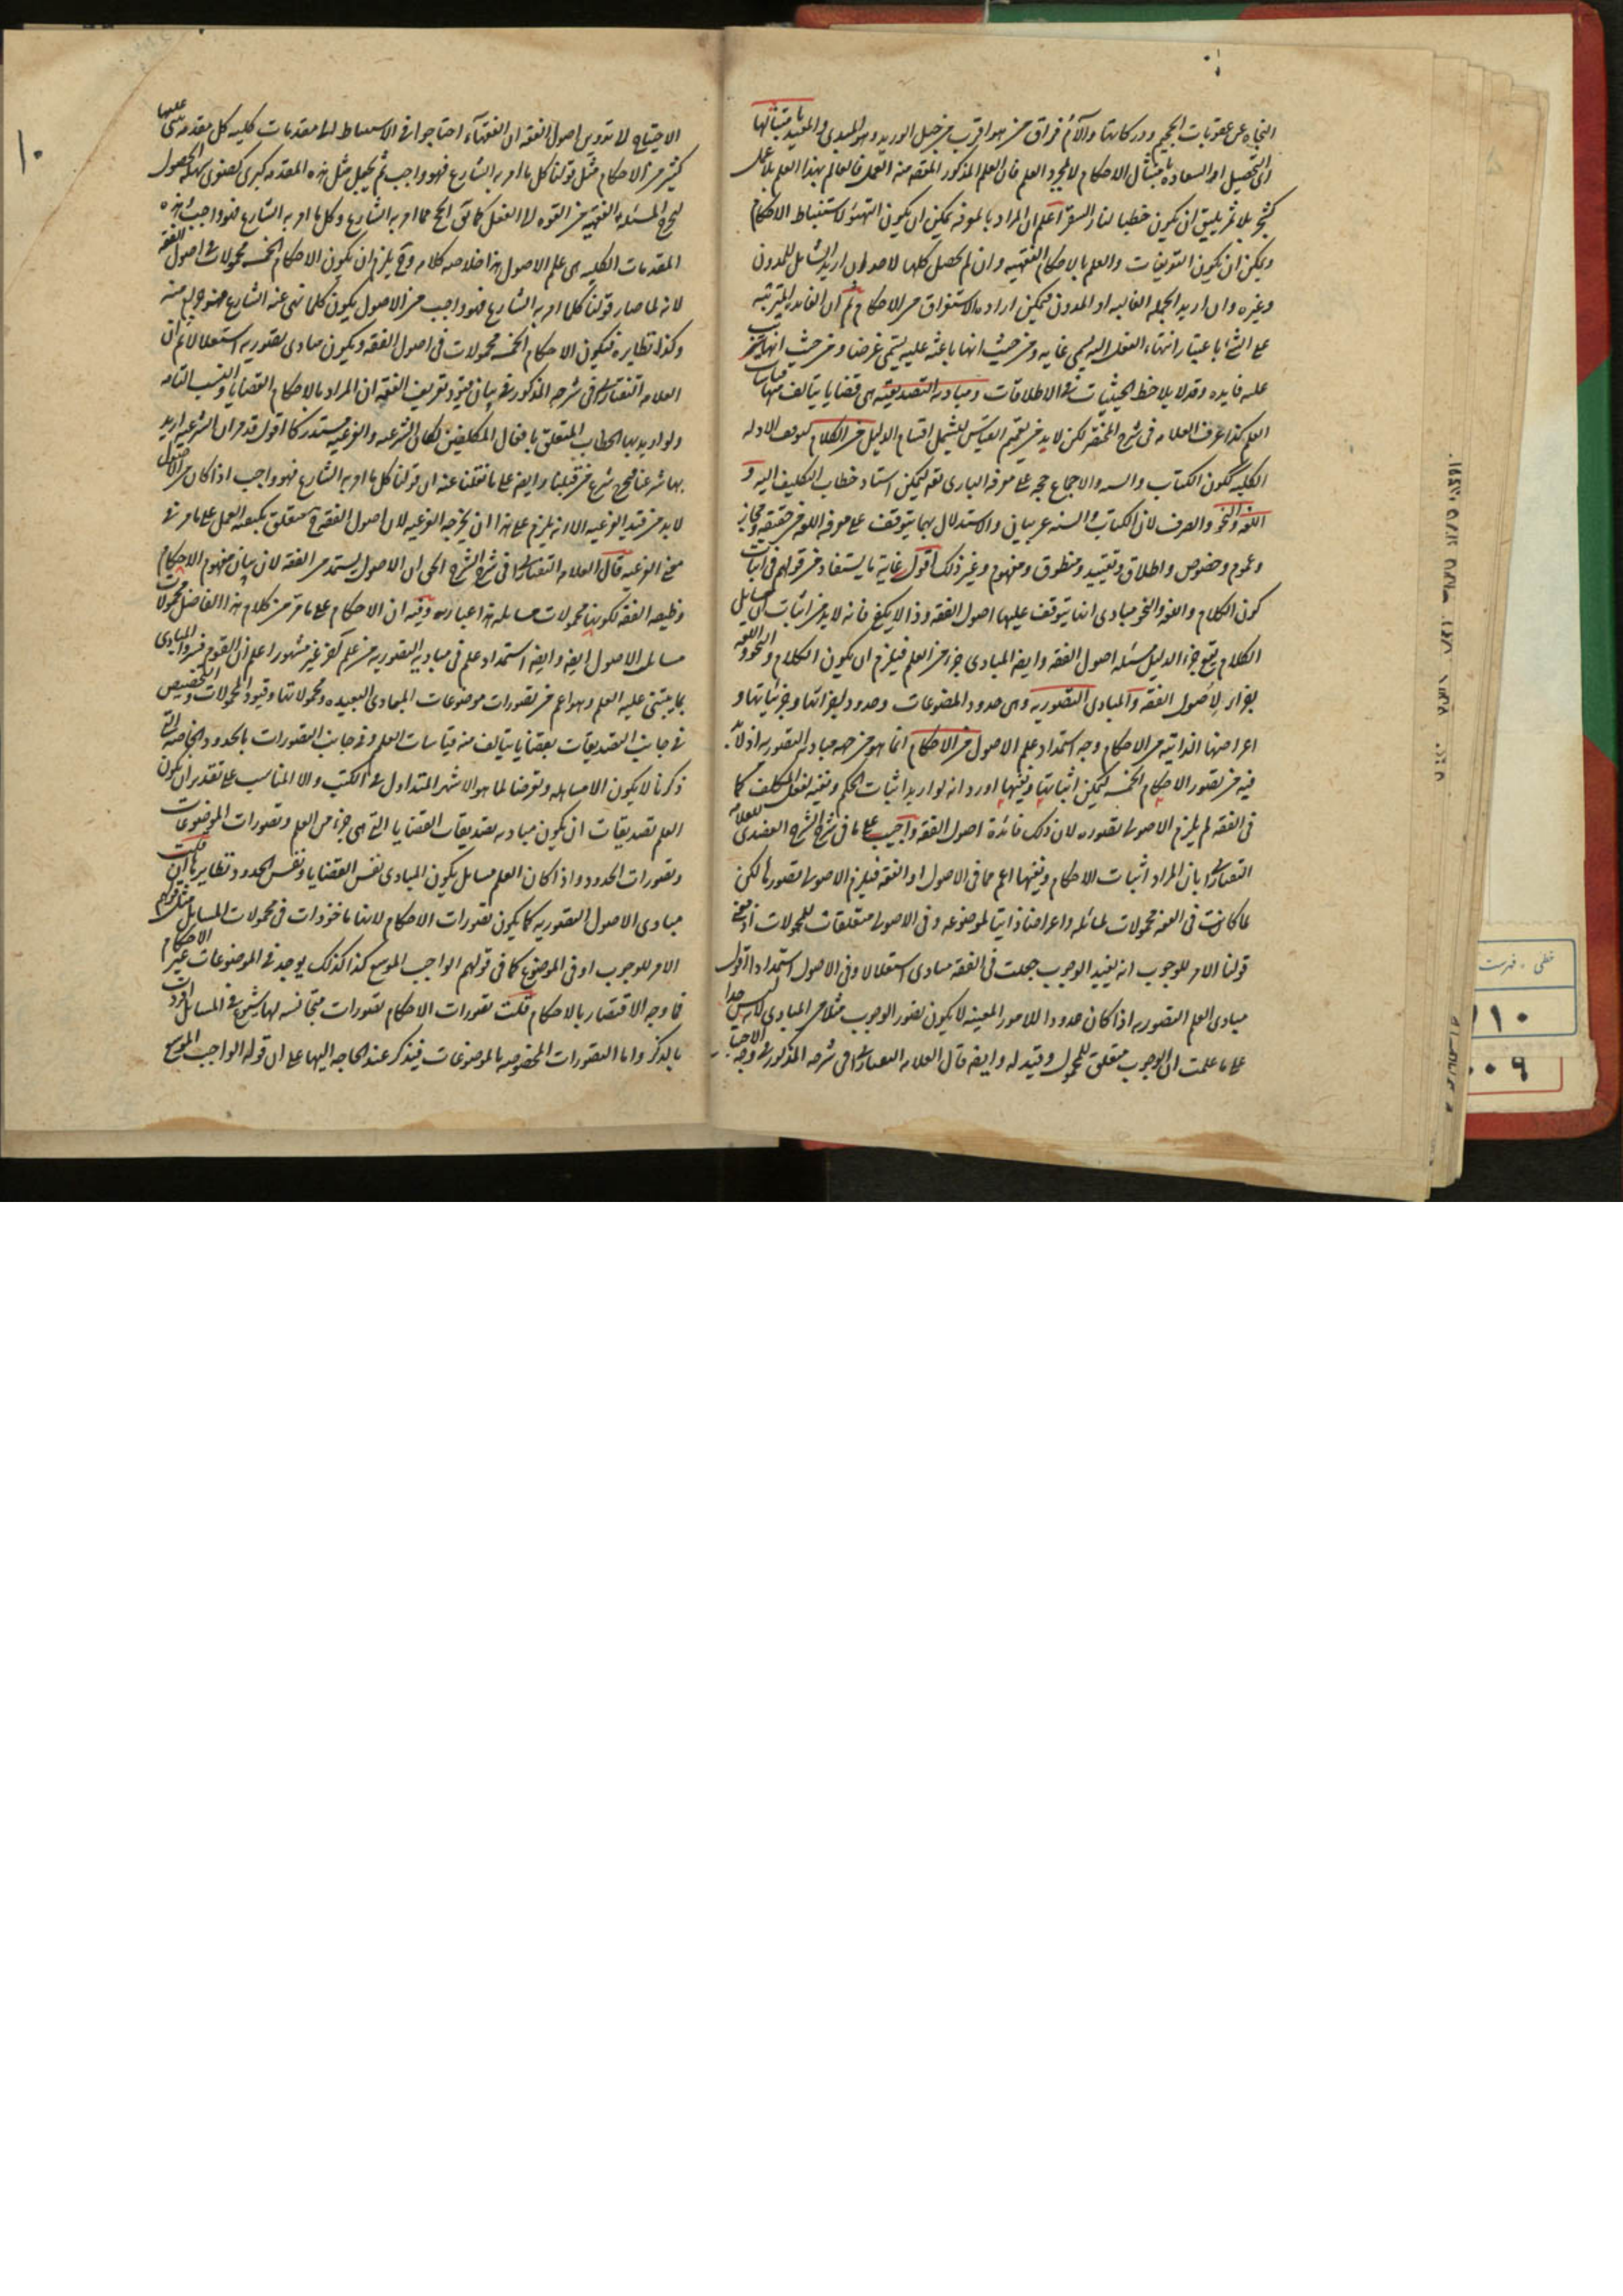 النجاه عن عقوبات الجحيم ودركاتها وآلام فراق من هو اقرب من حبل الوريد وهو المبدئ والمعيد
الى التحصيل او السعاده بامتثال الاحكام لا لمجرد العلم فان العلم المذكور المقصد منه العمل فالعالم بهذا العلم بلا عمل
كشجر بلا ثمر يليق ان يكون حطبا لنار السقر اعلم ان المراد بالمعرفه يمكن ان يكون التهيؤ لاستنباط الاحكام
ويمكن ان يكون التعريفات والعلم بالاحكام الفقهيه وان لم يحصل كلها لاحد ان اريد الشامل للمدون
وغيره وان اريد الجمله الغالبه او المدون فيمكن اراده الاستغراق من الاحكام ثم ان الفائده المترتبه
على الشئ باعتبار انتهاء الفعل اليه يسمى غايه ومن حيث انها باعثه عليه يسمى غرضا ومن حيث انها
عليه فايده وقد لا يلاحظ الحيثيات في الاطلاقات ومباديه التصديقيه هى قضايا يتالف منها قياسات
العلم كذا عرف العلامه فى شرح المختصر لكن لابد من تعميم القياس ليشمل اقسام الدليل من الكلام لتوقف الادله
الكليه ككون الكتاب والسنه والاجماع حجه على معرفه البارى تعه ليمكن اسناد خطاب التكليف اليه و
اللغه والنحو والصرف لان الكتاب والسنه عربيان والاستدلال بهما يتوقف على معرفه اللغه من حقيقه ومجاز
وعموم وخصوص واطلاق وتقييد ومنطوق ومفهوم وغير ذلك اقول غاية ما يستفاد من قولهم فى اثبات
كون الكلام واللغه والنحو مبادى انما يتوقف عليها اصول الفقه وذا لا يكفى فانه لابد من اثبات ان مسايل
الكلام يقع جزء الدليل مسئله اصول الفقه وايضا المبادى جزء من العلم فيلزم ان يكون الكلام والنحو واللغه
جزاء لاصول الفقه والمبادى التصوريه وهى حدود الموضوعات وحدود اجزائها وجزئياتها و
اعراضها الذاتيه من الاحكام وجه استمداد علم الاصول من الاحكام انما هو من جهه مباديه التصوريه اذ لابد
فيه من تصور الاحكام الخمسه ليمكن اثباتها ونفيها اورد انه لو اريد اثبات الحكم ونفيه لفعل المكلف كما
فى الفقه لم يلزم الاصولى تصوره لان ذلك فائدة اصول الفقه واجيب على ما فى شرح الشرح العضدى للعلامه
التفتازانى بان المراد اثبات الاحكام ونفيها اعم مما فى الاصول او الفقه فيلزم الاصولى تصورها لكن
لما كانت فى الفقه محمولات لمسائله واعراضا ذاتيا لموضوعه وفى الاصول متعلقات للمحمولات اذ معنى
قولنا الامر للوجوب انه يفيد الوجوب جعلت فى الفقه مبادى استقلالا وفى الاصول استمدادا اقول
مبادى العلم التصوريه اذا كان حدودا للامور المعينه لا يكون تصور الوجوب مثلا من المبادى لانه ليس حدا
على ما علمت ان الوجوب متعلق للمحمول وقيد له وايضا قال العلامه التفتازانى فى شرحه المذكور فى وجه الاحتياج
الاحتياج لا تدوين اصول الفقه ان الفقهآء احتاجوا فى الاستنباط الى مقدمات كليه كل مقدمه يبتنى عليها
كثير من الاحكام مثل قولنا كل ما امر به الشارع فهو واجب ثم يجعل مثل هذه المقدمه كبرى لصغرى سهله الحصول
ليخرج المسئله الفقهيه من القوه الى الفعل كما تقول الحج مما امر به الشارع وكل ما امر به الشارع فهو واجب هذه
المقدمات الكليه هى علم الاصول هذا خلاصه كلامه وح يلزم ان يكون الاحكام الخمسه محمولات فى اصول الفقه
لانه لما صار قولنا كلما امر به الشارع فهو واجب من الاصول يكون كلما نهى عنه الشارع فهو حرام منه
وكذا نظايره فيكون الاحكام الخمسه محمولات فى اصول الفقه ويكون مبادى تصوريه استقلالا ثم ان
العلامه التفتازانى فى شرحه المذكور فى بيان قيود تعريف الفقه ان المراد بالاحكام القضايا والنسب التامه
ولو اريد بها الخطاب المتعلق بافعال المكلفين لكان الشرعيه والفرعيه مستدركا اقول قد مر ان الشرعيه اريد
بها شرعنا فيخرج شرع من قبلنا وايضا على ما نقلنا عنه ان قولنا كل ما امر به الشارع فهو واجب اذا كان من الاصول
لابد من قيد الفرعيه الا انه يلزم على هذا ان يخرجه الفرعيه لان اصول الفقه متعلق بكيفيه العمل على ما مر فى
معنى الفرعيه قال العلامه التفتازانى فى شرح الشرح الحق ان الاصول يستمد من الفقه لان بيان مفهوم الاحكام
وظيفه الفقه لكونها محمولات مسايله هذا عبارته وفيه ان الاحكام على ما مر من كلام هذا الفاضل محمولات
مسايل الاصول ايضا وايضا استمداد علم فى مباديه التصوريه من علم آخر غير مشهور اعلم ان القوم فسروا المبادى
بما يبتنى عليه العلم وهو اعم من تصورات موضوعات المبادى البعيده ومحمولاتها وقيود المحمولات والتخصيص
فى جانب التصديقات بقضايا يتالف منه قياسات العلم وفى جانب التصورات بالحدود الخاصه التى
ذكرنا لا يكون الا مساهله وتعرضا لما هو الاشهر المتداول فى الكتب والا المناسب على تقدير ان يكون
العلم تصديقات ان يكون مباديه تصديقات القضايا التى هى جزء من العلم وتصورات الموضوعات
وتصورات الحدود واذا كان العلم مسايل يكون المبادى نفس القضايا ونفس الحدود ونظايرها فان قلت
مبادى الاصول التصوريه كما يكون تصورات الاحكام لانها ماخوذات فى محمولات المسايل مثل قولهم
الامر للوجوب او فى الموضوع كما فى قولهم الواجب الموسع كذا كذلك يوجد فى الموضوعات غير الاحكام
فما وجه الاقتصار بالاحكام قلت تصورات الاحكام تصورات متجانسه لها شيوع فى المسايل افردت
بالذكر واما التصورات المخصوصه بالموضوعات فيذكر عند الحاجه اليها على ان قوله الواجب الموسع
١٠
خطى . فهرست